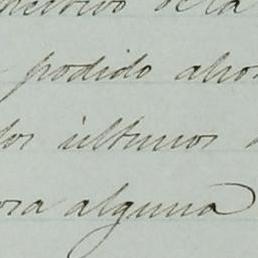 de la
podido aho
los últimos
osa alguna